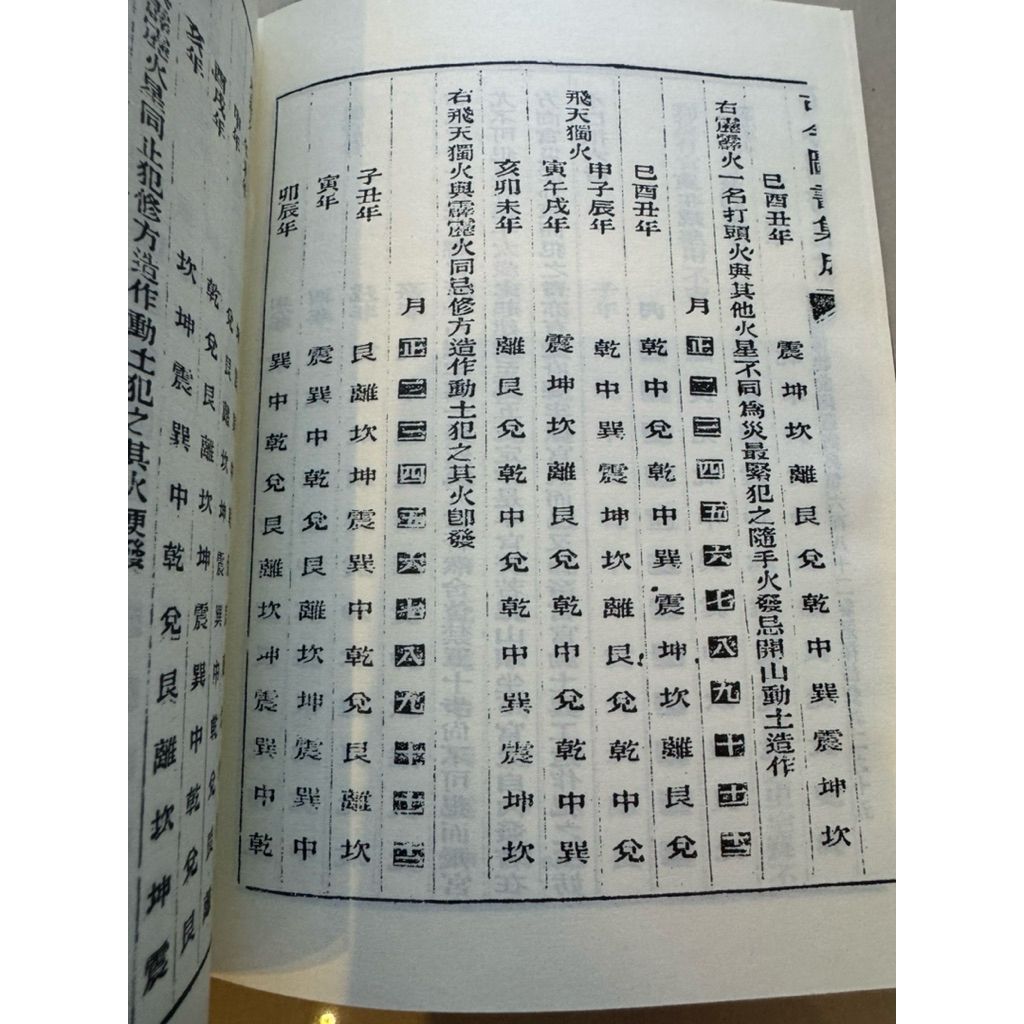 古今圖書集成
巳酉丑年 震坤坎離艮兌乾中巽震坤坎
右霹靂火一名打頭火與其他火星不同為災最緊犯之隨手火發忌開山動土造作
月 正二三四五六七八九十十一十二
巳酉丑年 乾中兌乾中巽震坤坎離艮兌
飛天獨火 申子辰年 乾中巽震坤坎離艮兌乾中兌
寅午戌年 震坤坎離艮兌乾中兌乾中巽
亥卯未年 離艮兌乾中兌乾中巽震坤坎
右飛天獨火與霹靂火同忌修方造作動土犯之其火卽發
月 正二三四五六七八九十十一十二
子丑年 艮離坎坤震巽中乾兌艮離坎
寅年 震巽中乾兌艮離坎坤震巽中
卯辰年 巽中乾兌艮離坎坤震巽中乾
酉戌年 乾兌艮離坎坤震巽中乾兌艮
亥年 坎坤震巽中乾兌艮離坎坤震
霹靂火星同止犯修方造作動土犯之其火便發